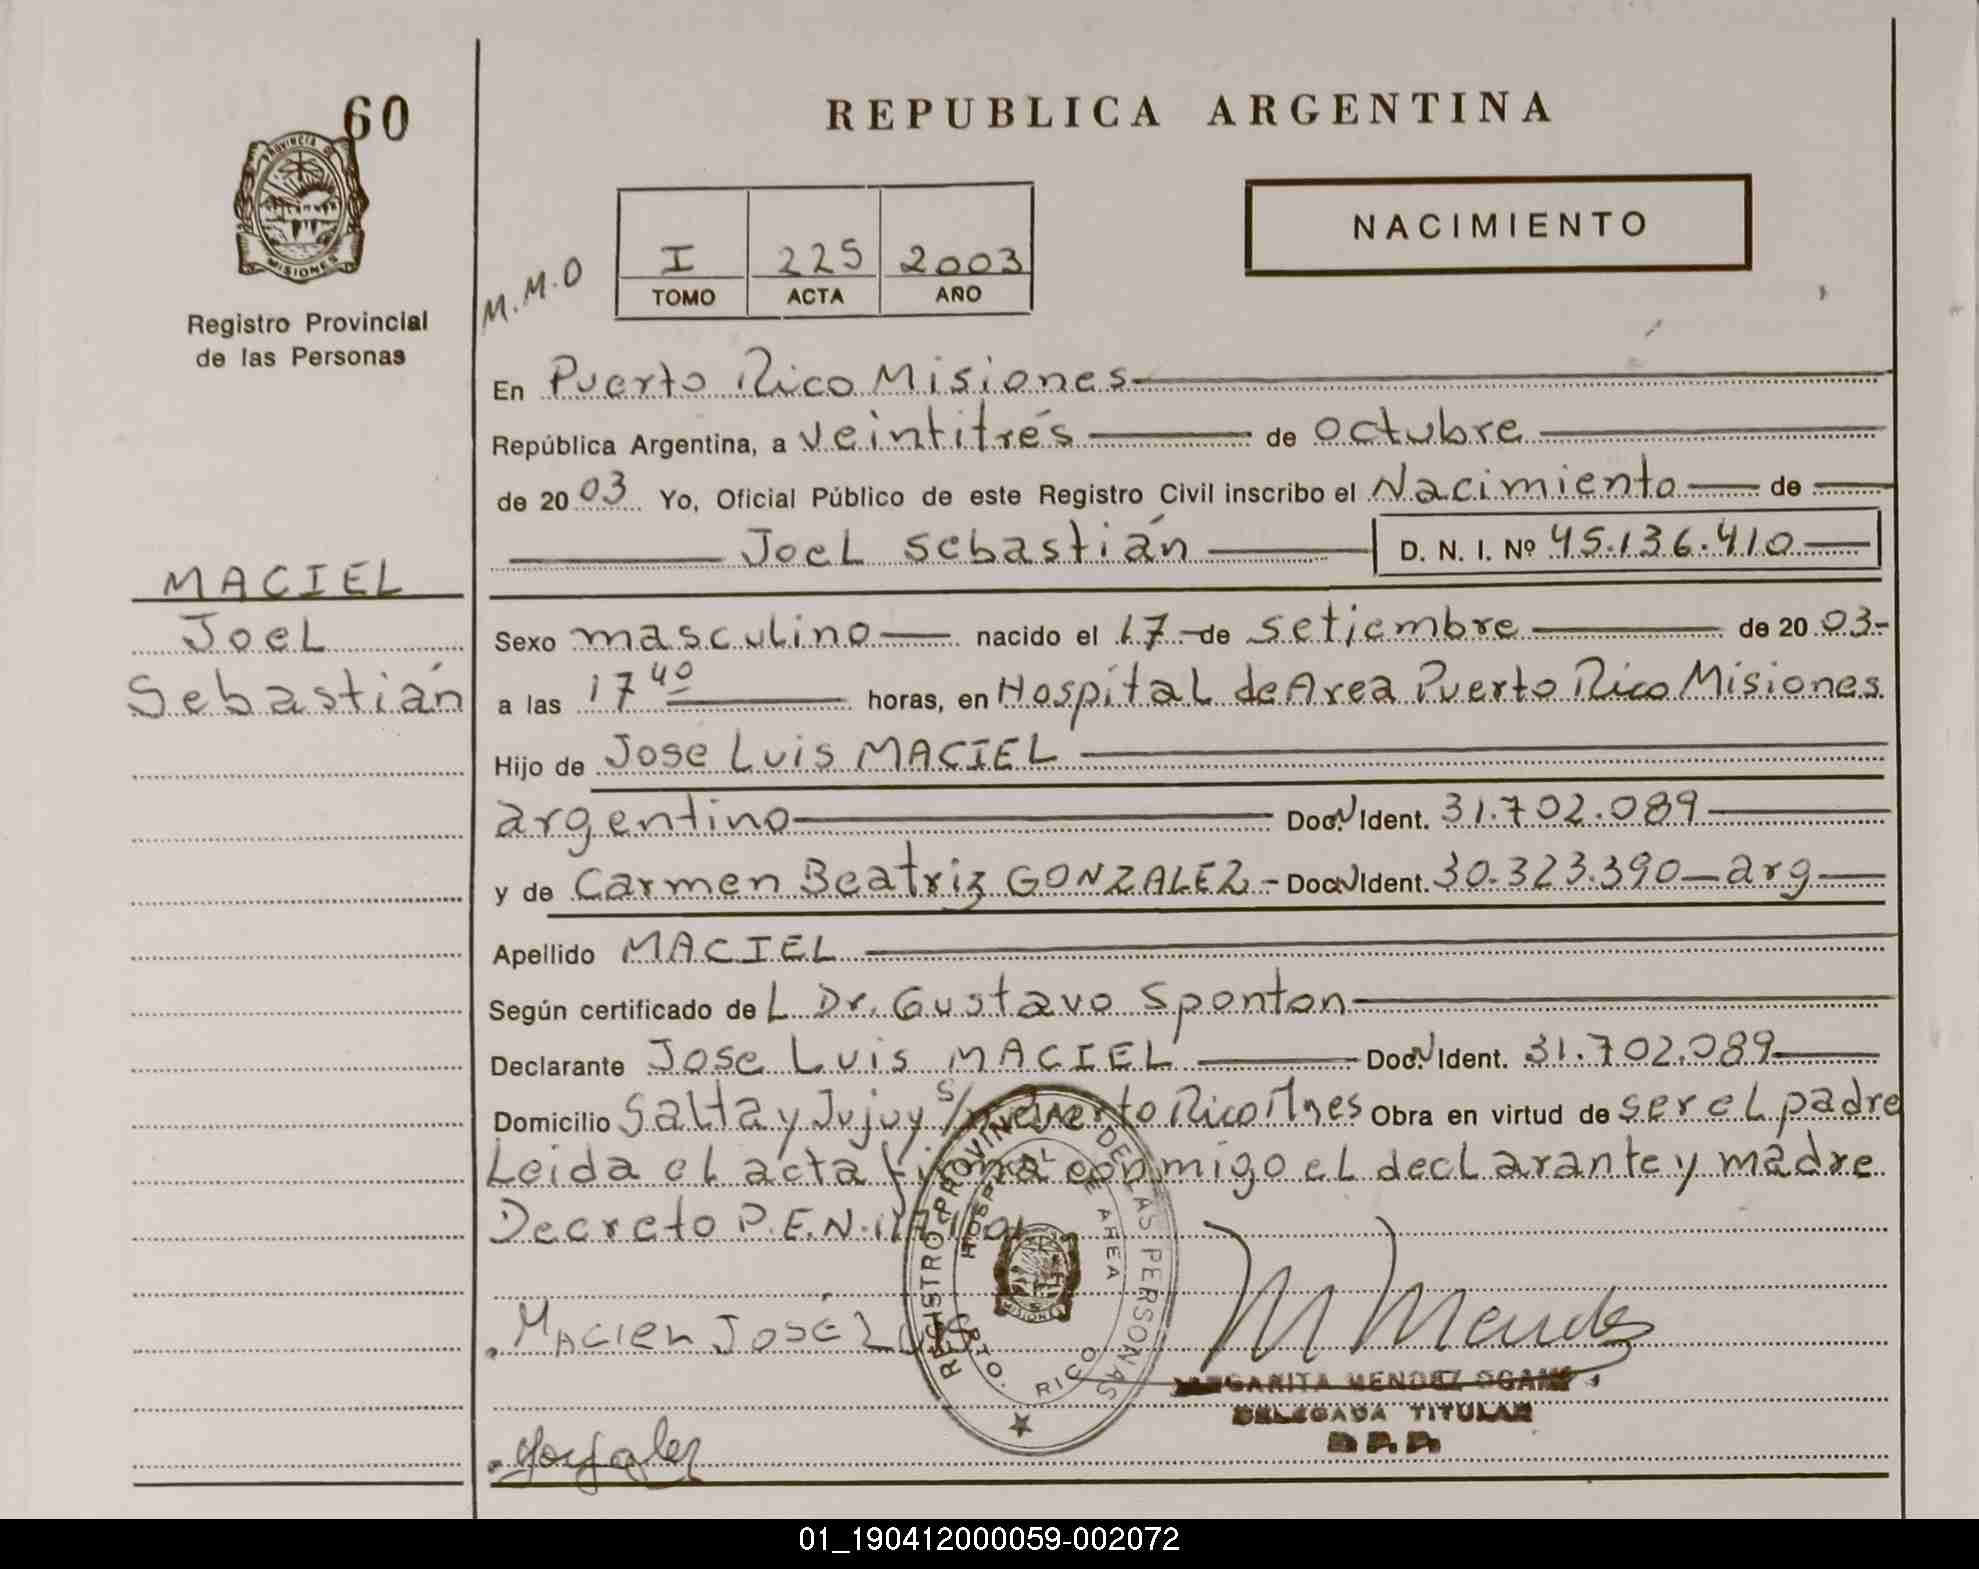 60
PROVINCIA DE
MISIONES
Registro Provincial
de las Personas
MACIEL
Joel
Sebastián
REPUBLICA ARGENTINA
NACIMIENTO
M.M.O
I 225 2003
TOMO ACTA AÑO
En Puerto Rico Misiones
República Argentina, a veintitrés de octubre
de 2003 Yo, Oficial Público de este Registro Civil inscribo el Nacimiento de
Joel Sebastián D. N. I. Nº 45.136.410
Sexo masculino nacido el 17 de setiembre de 2003-
a las 17 40 horas, en Hospital de Area Puerto Rico Misiones
Hijo de Jose Luis MACIEL
argentino Doc. Ident. 31.702.089
y de Carmen Beatriz GONZALEZ - Doc. Ident. 30.323.390 - arg
Apellido MACIEL
Según certificado del Dr. Gustavo Sponton
Declarante Jose Luis MACIEL Doc. Ident. 31.702.089
Domicilio Salta y Jujuy s/n Puerto Rico Mnes Obra en virtud de ser el padre
Leida el acta firma conmigo el declarante y madre
Decreto P.E.N.
REGISTRO PROVINCIAL DE LAS PERSONAS
HOSPITAL DE AREA
PTO. RICO
MISIONES
Maciel José Luis
M Mendez
MARGARITA MENDEZ
DELEGADA TITULAR
Gonzalez
01_190412000059-002072